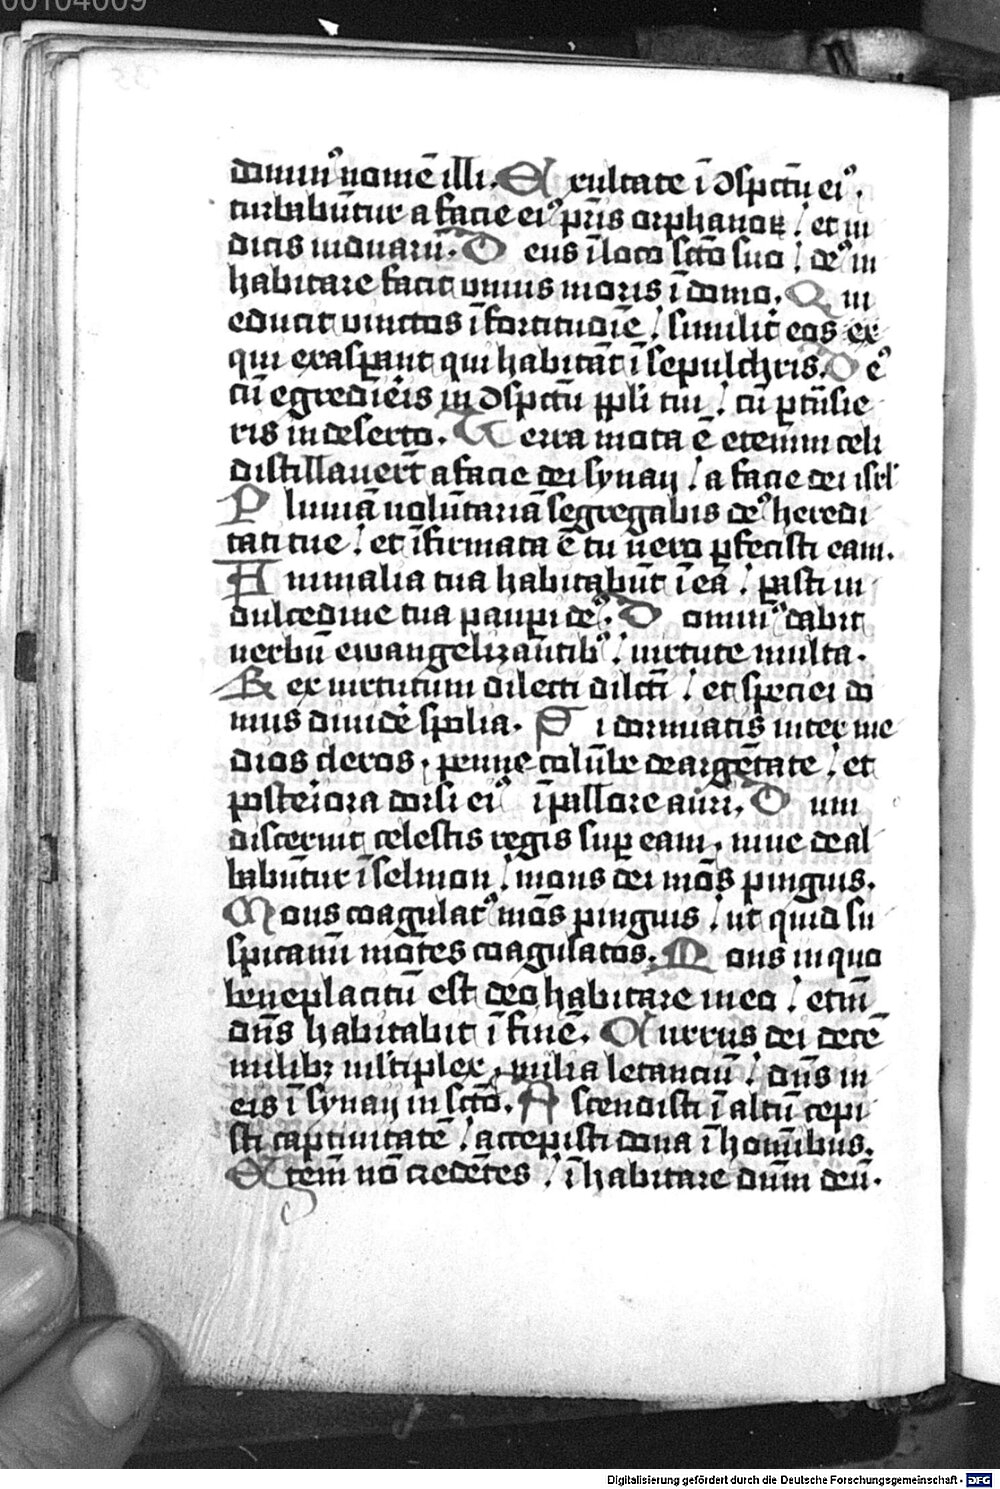 00104009
dominꝰ nomē illi. Exultate ī ↄspctū eiꝰ.
turbabūtur a facie eiꝰ pr̄is orphanoꝝ / et iu
dicis uiduarū. Deus ī loco sctō suo / deꝰ in
habitare facit unius moris ī domo. Qui
educit vinctos ī fortitudīe / similit̄ eos ex
qui exasꝑant qui habitāt ī sepulchris. Deꝰ
cū egredieris in ↄspctū ppli tui / cū ꝑtūsie
ris in deserto. Terra mota ē etenim celi
distillauerūt a facie dei synay / a facie dei isrl
Pluuiā uolūtariā segregabis deꝰ heredi
tati tue / et īfirmata ē tu uero ꝑfecisti eam.
Animalia tua habitabūt ī ea / parasti in
dulcedine tua pauꝑi deꝰ. Dominꝰ dabit
uerbū ewangelizātibꝰ / uirtute multa.
Rex uirtutum dilecti dilcti / et speciei do
mus diuidē spolia. Si dormiatis inter me
dios cleros, penne colūbe deargētate / et
posteriora dorsi eiꝰ ī pallore auri. Dum
discernit celestis reges suꝑ eam, niue deal
babūtur ī selmon / mons dei mōs pinguis.
Mons coagulatꝰ mōs pinguis / ut quid su
spicamī mōtes coagulatos. Mons in quo
beneplacitū est deo habitare in eo / eteni
dn̄s habitabit ī finē. Currus dei decē
milibꝫ mltiplex, milia letanciū / dn̄s in
eis ī synay in sctō. Ascendisti ī altū cepi
sti captiuitatē / accepisti dona ī homībus.
Etem nō credētes / īhabitare dnm deū.
Digitalisierung gefördert durch die Deutsche Forschungsgemeinschaft - DFG